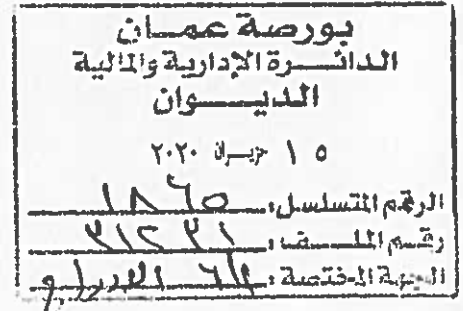 بورصة عمــان
الدائــــرة الإدارية والمالية
الديـــوان
١ ٥ حزيــران ٢٠٢٠
الرقم المتسلسل: ١٨٦٥
رقـــم الملـــف:
الجهة المختصة: